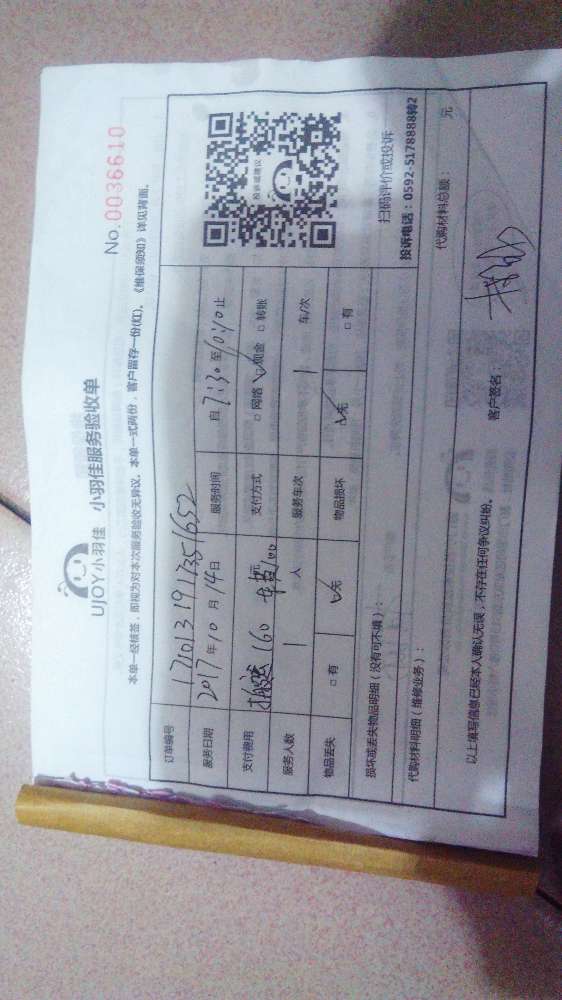 UJOY小羽佳 小羽佳服务验收单
No. 0036610
本单一经核签，即视为对本次服务验收无异议，本单一式两份，客户留存一份(红)。《维保须知》详见背面。
订单编号 171013191735 1652
服务日期 2017年10月14日 服务时间 自7:30至10:40止
支付费用 搬运160 车费100元 支付方式 □网络 ☑现金 □转账
服务人数 1人 服务车次 1车/次
物品丢失 □有 ☑无 物品损坏 ☑无 □有
投诉或建议
扫码评价或投诉
投诉电话：0592-5178888转2
损坏或丢失物品明细（没有可不填）：
代购材料明细（维修业务）： 代购材料总额： 元
以上填写信息已经本人确认无误，不存在任何争议纠纷。 客户签名